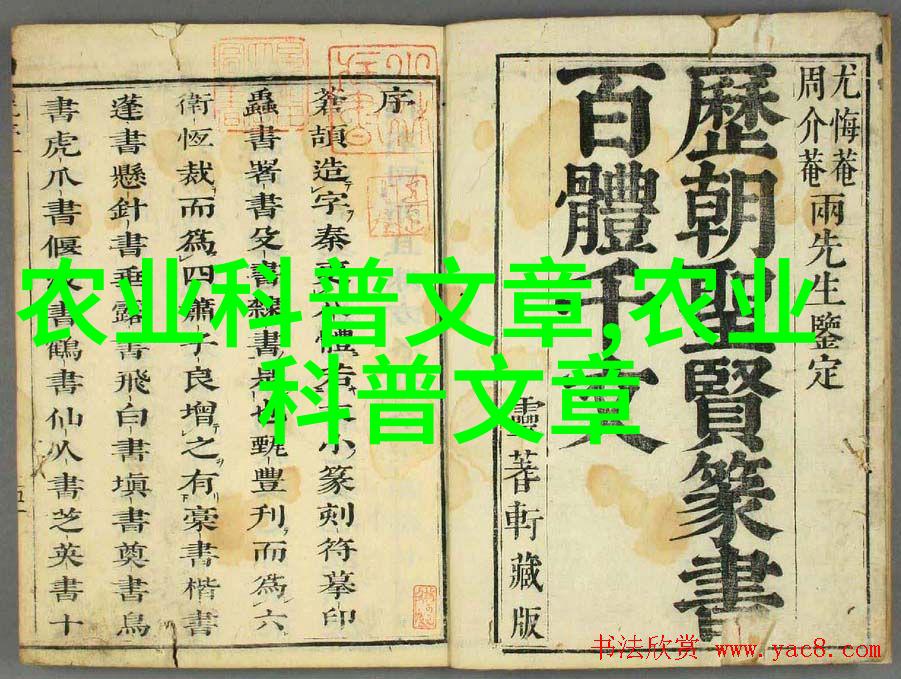 尤悔菴
周介菴
兩先生鑒定
歷朝聖賢篆書
百體千文
霝蓍軒藏版
序
蒼頡造字秦
小篆刻符摹印
蟲書署書殳書
甄豐刋而爲六
衛恆裁而爲四蕭子良增之有藁書楷書
蓬書懸針書垂露書飛白書塡書奠書鳥
書虎爪書偃
書鶴書仙人書芝英書十
农业科普文章,农业
科普文章
书法欣赏 www.yac8.com